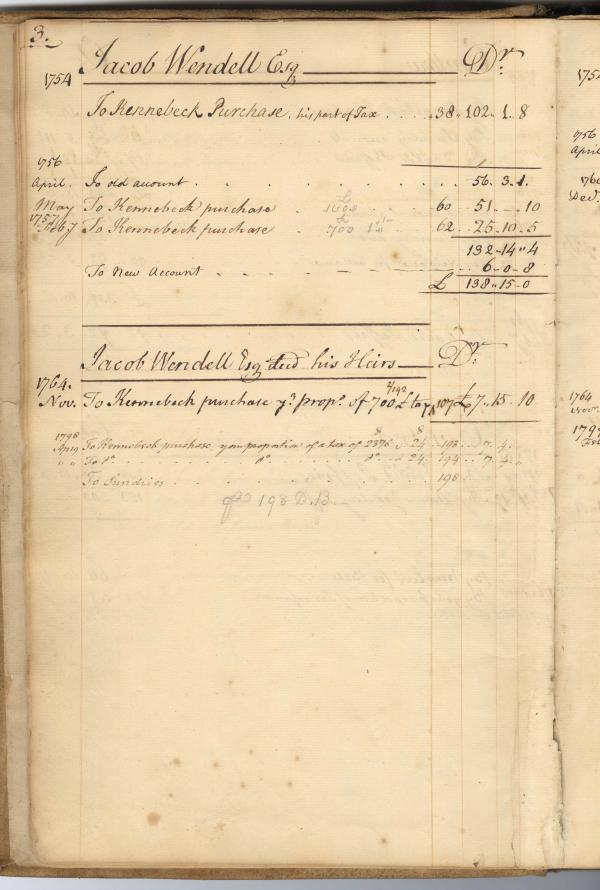 3.
Jacob Wendell Esq Dr
1754
To Kennebeck Purchase, his part of Tax 38 102 1 8
1756
April To old account 56 3 1
May To Kennebeck purchase £1600 60 51 - 10
1757 Feb 7 To Kennebeck purchase £700 62 25 10 5
132 14 4
To New Account 6 0 8
£ 138 15 0
Jacob Wendell Esq decd his Heirs Dr
1764
Nov. To Kennebeck purchase yr propo of 700£ tax 107 £7 15 10
1798
To Kennebeck purchase your proportion of a tax of 2376 24 193 7 4
" " To Do Do Do 24 194 7 4
To Sundries 198
198 D.B.
1754
1756
April
1764
Novr